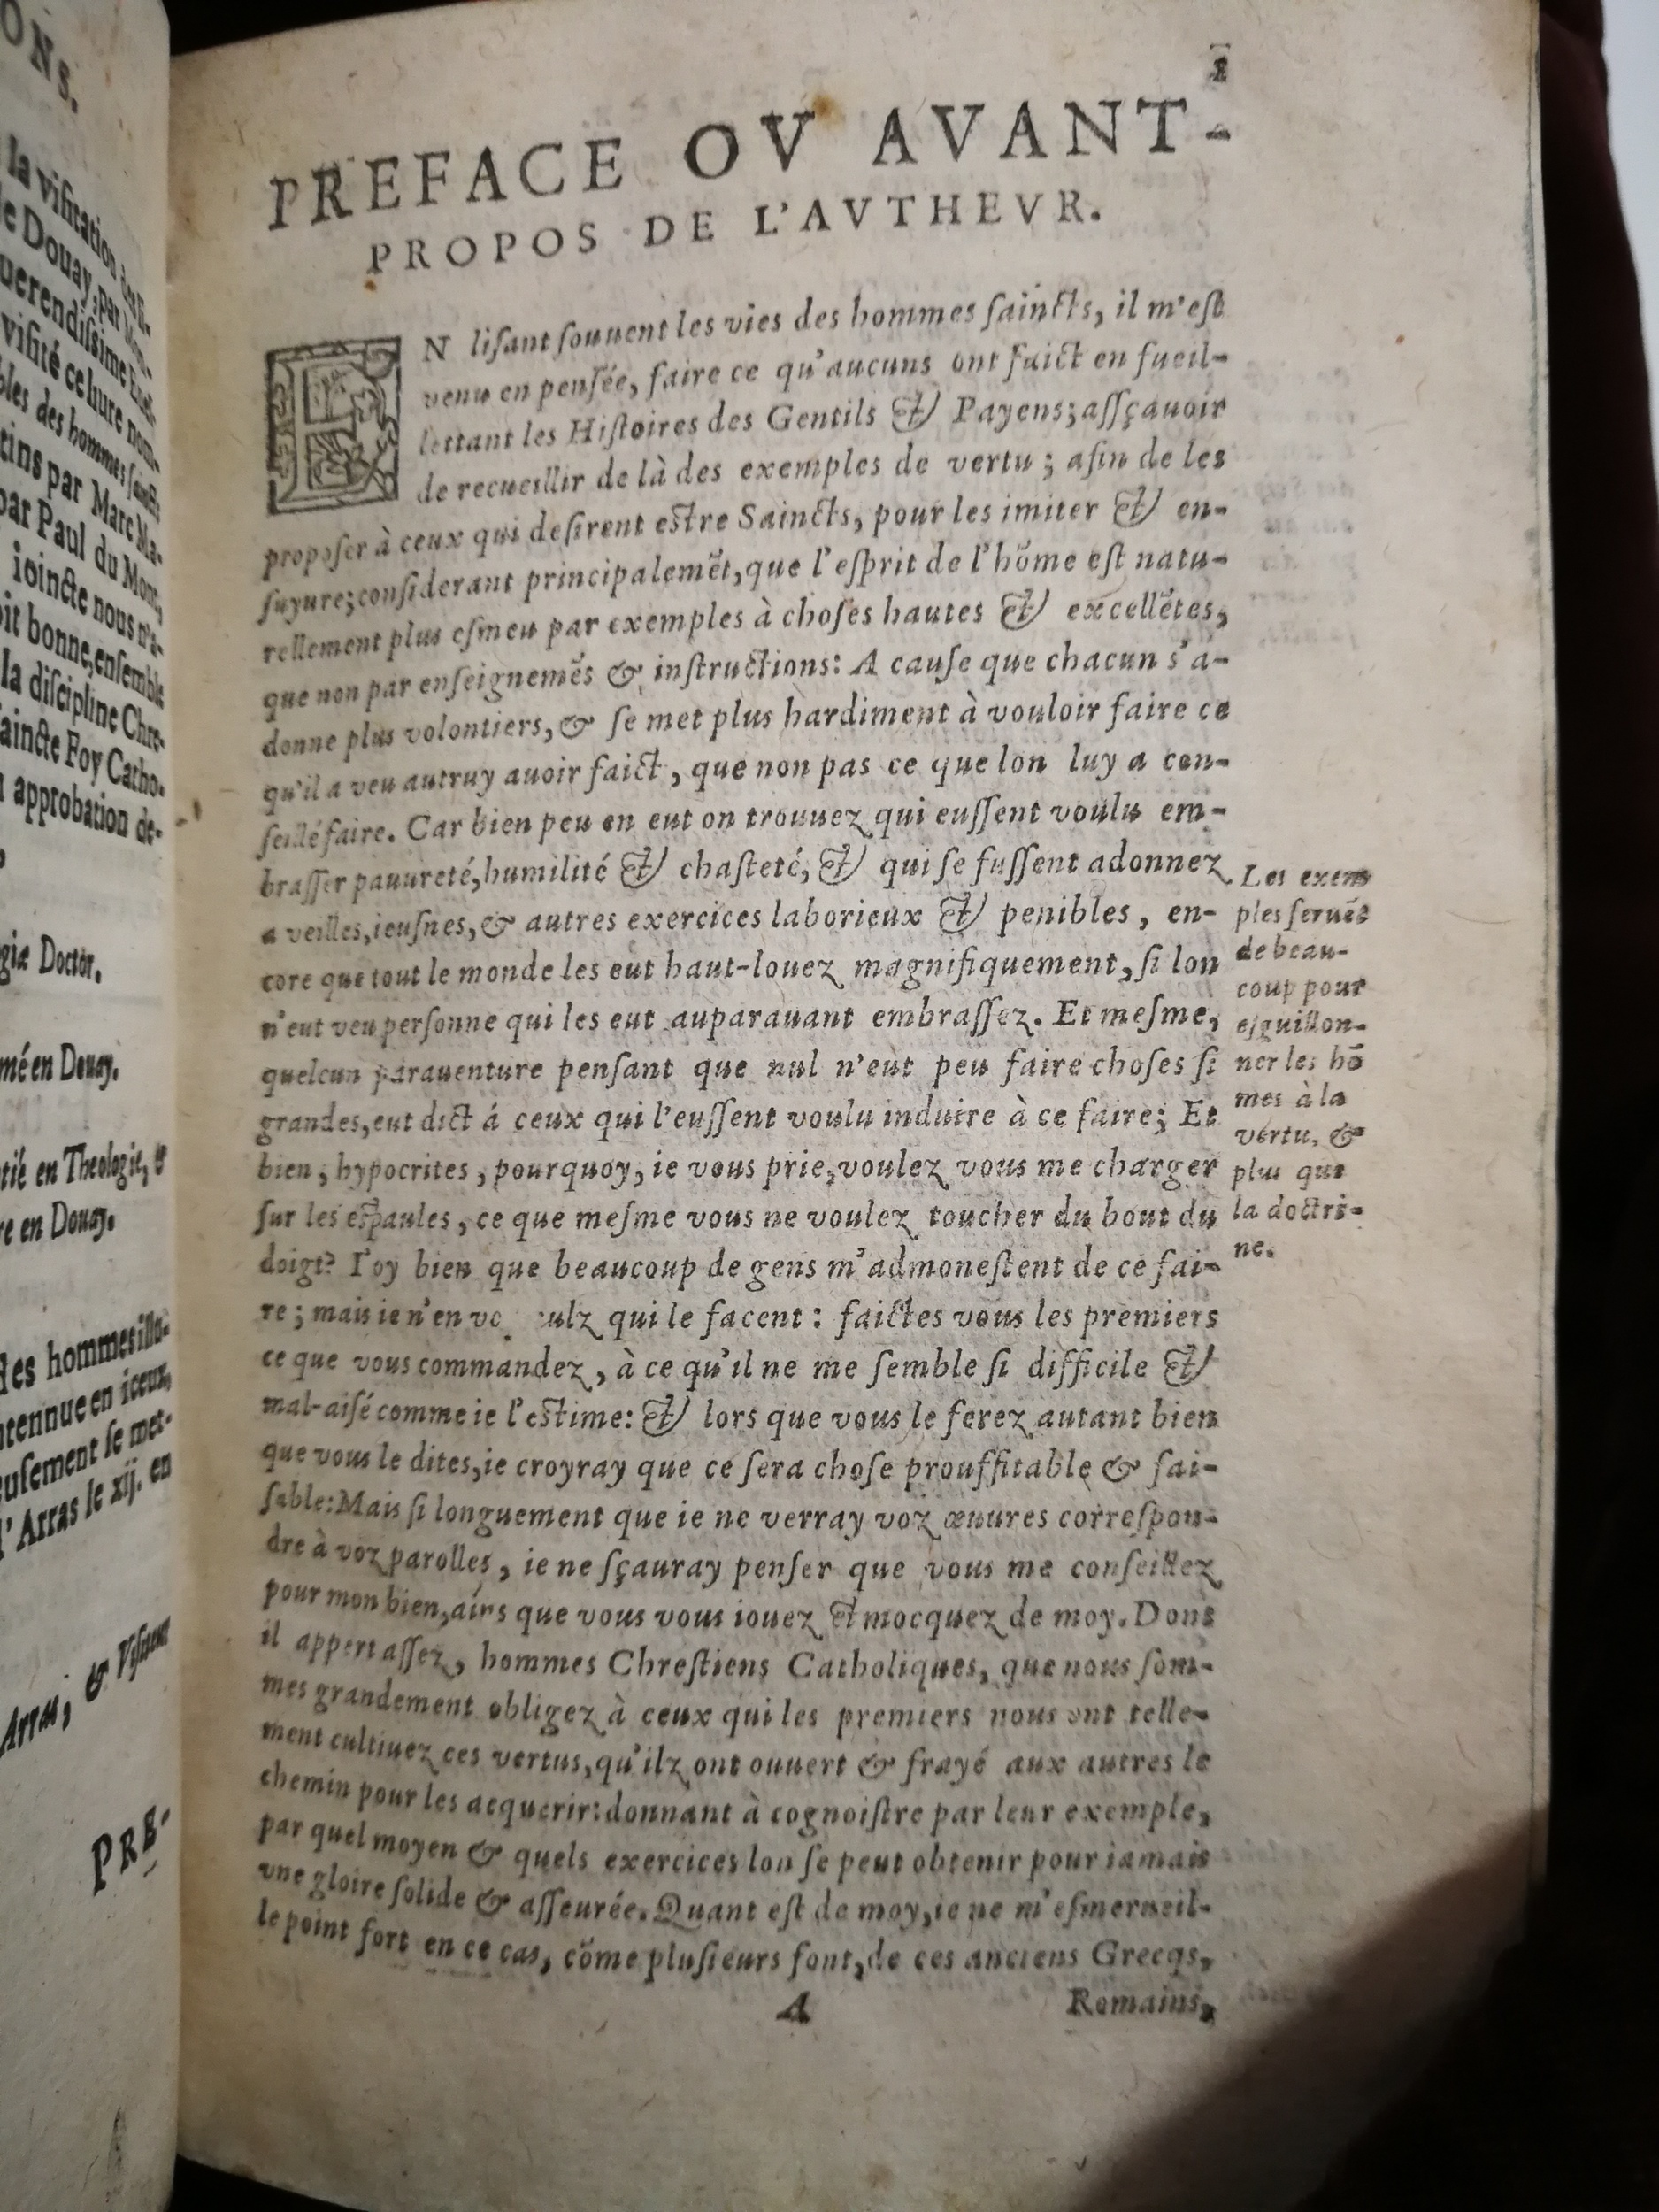 ONS.
la visitation des li-
de Douay, par Mon-
uerendissime Eues-
visité ce liure nom-
bles des hommes saincts
tins par Marc Ma-
par Paul du Mont,
ioincte nous n'a-
oit bonne, ensemble
la discipline Chre-
saincte Foy Catho-
approbation de-
giæ Doctor.
mé en Douay.
tié en Theologie, &
re en Douay.
des hommes illu-
ntennue en iceux,
eusement se met-
d'Arras le xij. en
Arras, & Visiteur
PRE-
1
PREFACE OV AVANT-
PROPOS DE L'AVTHEVR.
EN lisant souuent les vies des hommes saincts, il m'est
venu en pensée, faire ce qu'aucuns ont faict en fueil-
lettant les Histoires des Gentils & Payens; assçauoir
de recueillir de là des exemples de vertu; afin de les
proposer à ceux qui desirent estre Saincts, pour les imiter & en-
suyure; considerant principalemẽt, que l'esprit de l'hõme est natu-
rellement plus esmeu par exemples à choses hautes & excellẽtes,
que non par enseignemẽs & instructions: A cause que chacun s'a-
donne plus volontiers, & se met plus hardiment à vouloir faire ce
qu'il a veu autruy auoir faict, que non pas ce que lon luy a con-
seillé faire. Car bien peu en eut on trouuez qui eussent voulu em-
brasser pauureté, humilité & chasteté, & qui se fussent adonnez
a veilles, ieusnes, & autres exercices laborieux & penibles, en-
core que tout le monde les eut haut-louez magnifiquement, si lon
n'eut veu personne qui les eut auparauant embrassez. Et mesme,
quelcun parauenture pensant que nul n'eut peu faire choses si
grandes, eut dict á ceux qui l'eussent voulu induire à ce faire; Et
bien, hypocrites, pourquoy, ie vous prie, voulez vous me charger
sur les espaules, ce que mesme vous ne voulez toucher du bout du
doigt? I'oy bien que beaucoup de gens m'admonestent de ce fai-
re; mais ie n'en vo ulz qui le facent: faictes vous les premiers
ce que vous commandez, à ce qu'il ne me semble si difficile &
mal-aisé comme ie l'estime: & lors que vous le ferez autant bien
que vous le dites, ie croyray que ce sera chose prouffitable & fai-
sable: Mais si longuement que ie ne verray voz œuures correspon-
dre à voz parolles, ie ne sçauray penser que vous me conseillez
pour mon bien, ains que vous vous iouez & mocquez de moy. Donc
il appert assez, hommes Chrestiens Catholiques, que nous som-
mes grandement obligez à ceux qui les premiers nous ont telle-
ment cultiuez ces vertus, qu'ilz ont ouuert & frayé aux autres le
chemin pour les acquerir: donnant à cognoistre par leur exemple,
par quel moyen & quels exercices lon se peut obtenir pour iamais
vne gloire solide & asseurée. Quant est de moy, ie ne m'esmerueil-
le point fort en ce cas, cõme plusieurs font, de ces anciens Grecqs,
A
Romains,
Les exem
ples seruẽt
de beau-
coup pour
esguillon-
ner les hõ
mes à la
vertu, &
plus que
la doctri-
ne.